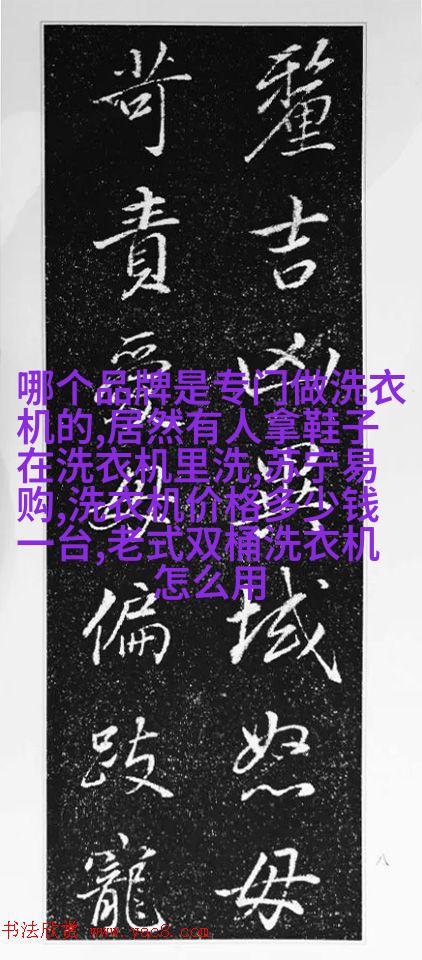 釐吉凶異域怒毋
苛責愛毋偏跂寵
哪个品牌是专门做洗衣
机的,居然有人拿鞋子
在洗衣机里洗,苏宁易
购,洗衣机价格多少钱
一台,老式双桶洗衣机
怎么用
八
书法欣赏 www.yac8.com